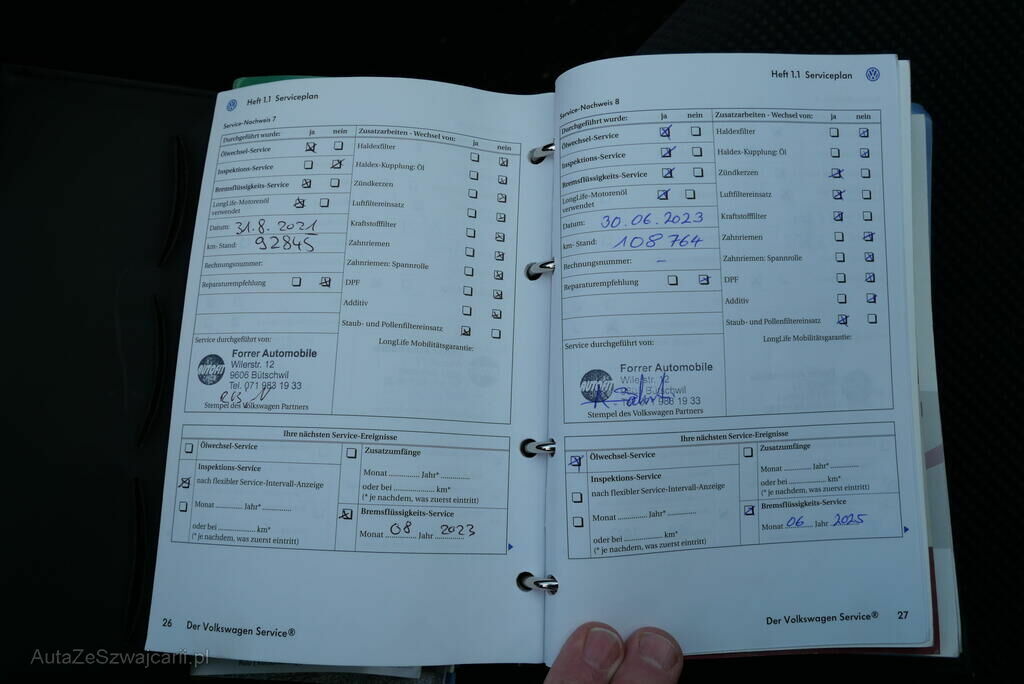 Heft 1.1 Serviceplan
Service-Nachweis 7
Durchgeführt wurde: ja nein
Ölwechsel-Service
Inspektions-Service
Bremsflüssigkeits-Service
LongLife-Motorenöl
verwendet
Datum: 31.8.2021
km- Stand: 92845
Rechnungsnummer:
Reparaturempfehlung
Service durchgeführt von:
AUTOFIT
Forrer Automobile
Wilerstr. 12
9606 Bütschwil
Tel. 071 983 19 33
Stempel des Volkswagen Partners
Zusatzarbeiten - Wechsel von: ja nein
Haldexfilter
Haldex-Kupplung: Öl
Zündkerzen
Luftfiltereinsatz
Kraftstofffilter
Zahnriemen
Zahnriemen: Spannrolle
DPF
Additiv
Staub- und Pollenfiltereinsatz
LongLife Mobilitätsgarantie:
Ihre nächsten Service-Ereignisse
Ölwechsel-Service
Inspektions-Service
nach flexibler Service-Intervall-Anzeige
Monat ............. Jahr* .............
oder bei ..................... km*
(* je nachdem, was zuerst eintritt)
Zusatzumfänge
Monat ............. Jahr* .............
oder bei ..................... km*
(* je nachdem, was zuerst eintritt)
Bremsflüssigkeits-Service
Monat 08 Jahr 2023
26 Der Volkswagen Service®
Heft 1.1 Serviceplan
Service-Nachweis 8
Durchgeführt wurde: ja nein
Ölwechsel-Service
Inspektions-Service
Bremsflüssigkeits-Service
LongLife-Motorenöl
verwendet
Datum: 30.06.2023
km- Stand: 108764
Rechnungsnummer: –
Reparaturempfehlung
Service durchgeführt von:
AUTOFIT
Forrer Automobile
Wilerstr. 12
9606 Bütschwil
Tel. 071 983 19 33
Stempel des Volkswagen Partners
Zusatzarbeiten - Wechsel von: ja nein
Haldexfilter
Haldex-Kupplung: Öl
Zündkerzen
Luftfiltereinsatz
Kraftstofffilter
Zahnriemen
Zahnriemen: Spannrolle
DPF
Additiv
Staub- und Pollenfiltereinsatz
LongLife Mobilitätsgarantie:
Ihre nächsten Service-Ereignisse
Ölwechsel-Service
Inspektions-Service
nach flexibler Service-Intervall-Anzeige
Monat ............. Jahr* .............
oder bei ..................... km*
(* je nachdem, was zuerst eintritt)
Zusatzumfänge
Monat ............. Jahr* .............
oder bei ..................... km*
(* je nachdem, was zuerst eintritt)
Bremsflüssigkeits-Service
Monat 06 Jahr 2025
Der Volkswagen Service® 27
AutaZeSzwajcarii.pl